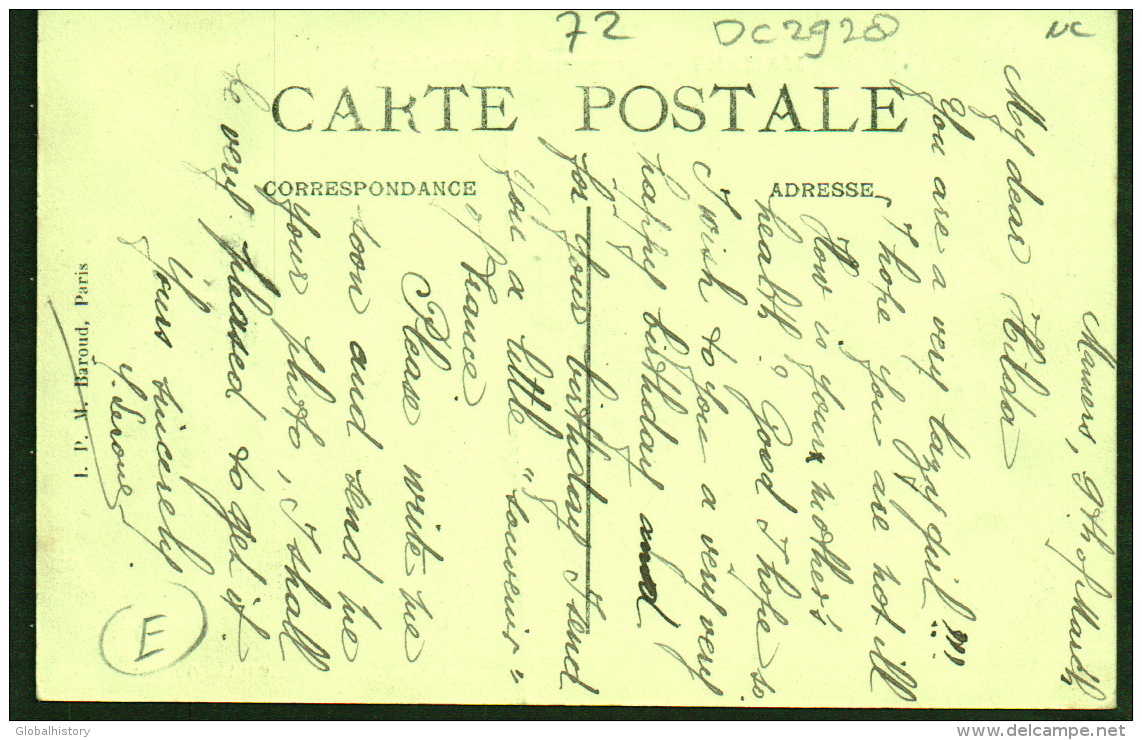 72
DC2928
NC
CARTE POSTALE
CORRESPONDANCE
ADRESSE
Mamers, 9th of March
My dear Hilda
You are a very lazy girl!!!
I hope you are not ill
How is your mother's
health? Good I hope so
I wish to you a very very
happy birthday and
for your birthday I send
you a little "souvenir"
of France
Please write me
soon and send me
your photo, I shall
be very pleased to get it.
Yours sincerely
I. P. M. Baroud, Paris
E
Globalhistory
www.delcampe.net